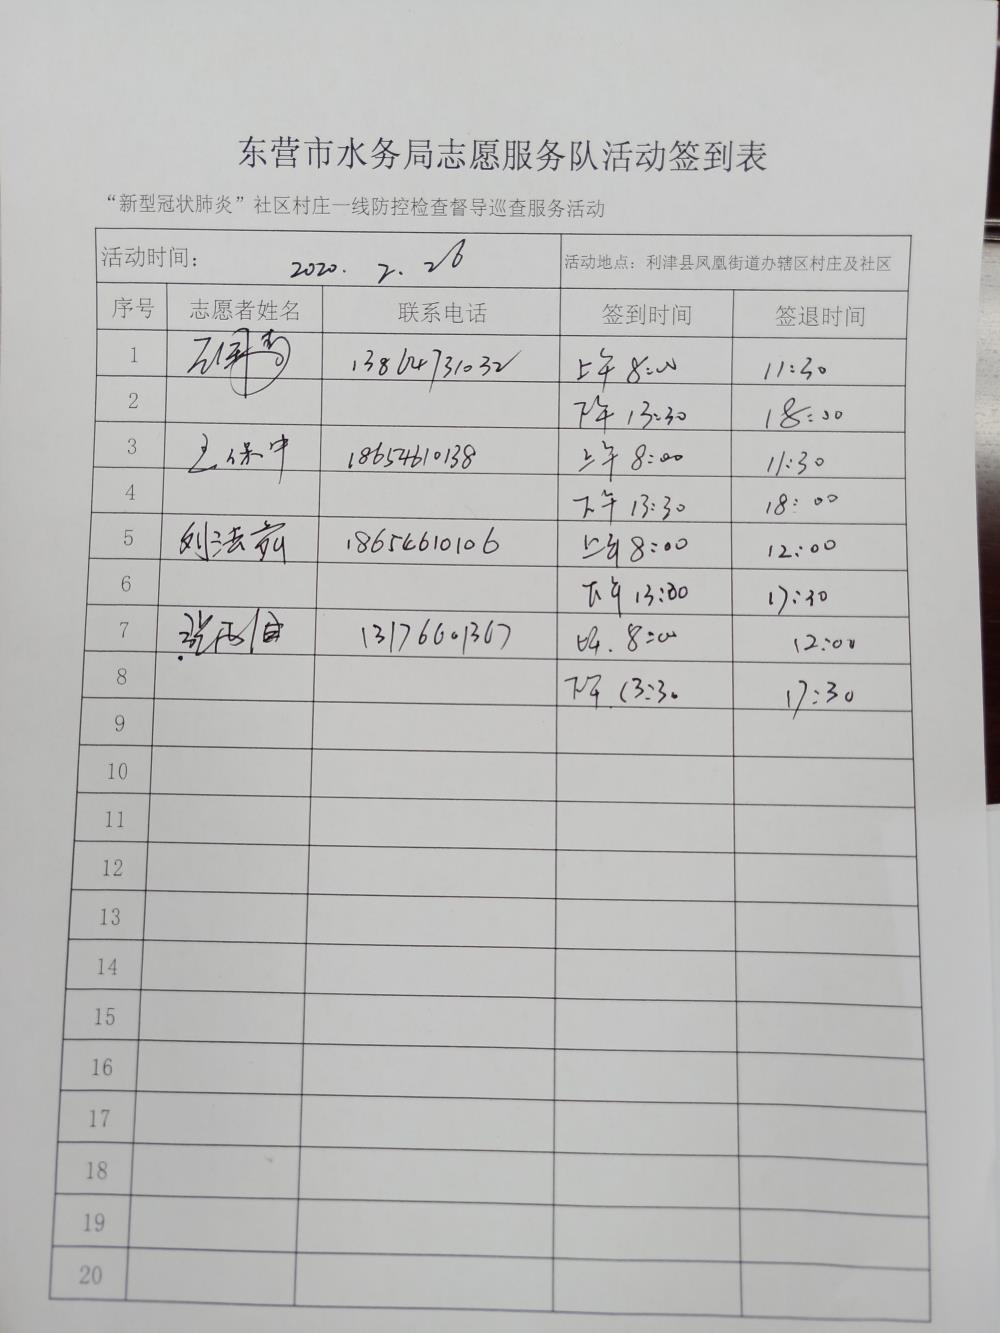 东营市水务局志愿服务队活动签到表
“新型冠状肺炎”社区村庄一线防控检查督导巡查服务活动
活动时间: 2020.2.26 活动地点: 利津县凤凰街道办辖区村庄及社区
序号 志愿者姓名 联系电话 签到时间 签退时间
1 13864731032 上午8:00 11:30
2 下午13:30 18:00
3 王保中 18654610138 上午8:00 11:30
4 下午13:30 18:00
5 刘法 18654610106 上午8:00 12:00
6 下午13:00 17:30
7 13176601367 8:00 12:00
8 下午13:30 17:30
9
10
11
12
13
14
15
16
17
18
19
20